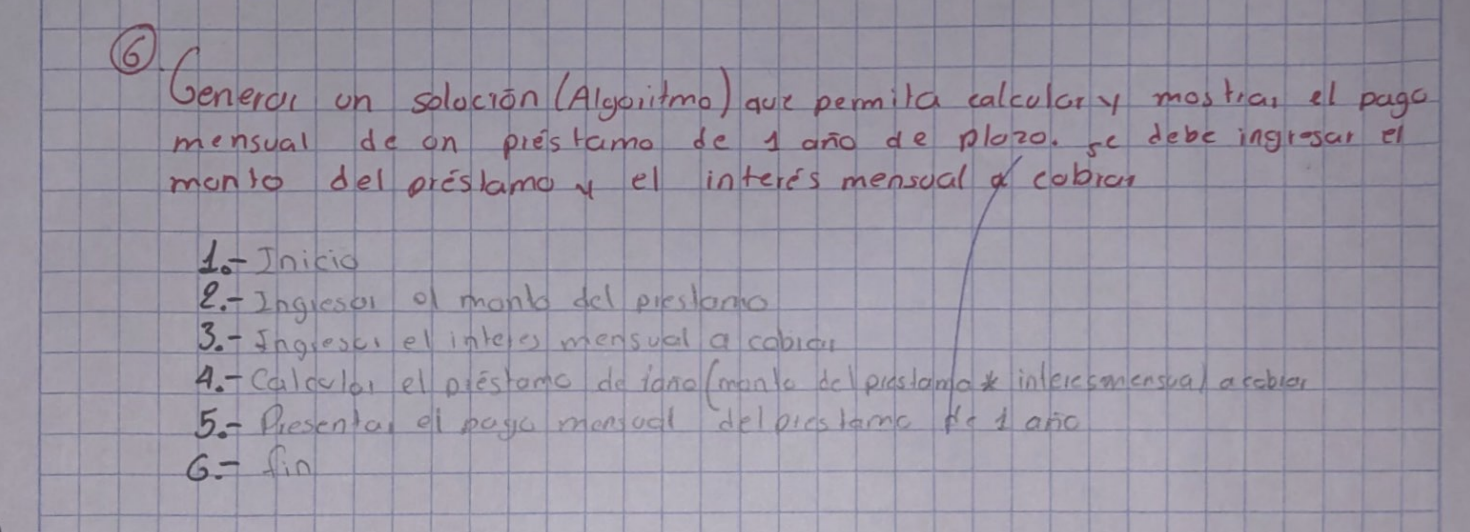 6. Generar un solución (Algoritmo) que permita calcular y mostrar el pago
mensual de un préstamo de 1 año de plazo. se debe ingresar el
monto del préstamo y el interés mensual a cobrar
1.- Inicio
2.- Ingresar el monto del prestamo
3.- Ingresar el interes mensual a cobrar
4.- Calcular el préstamo de 1año (monto del prestamo * interes mensual a cobrar
5.- Presentar el pago mensual del prestamo de 1 año
6.- fin